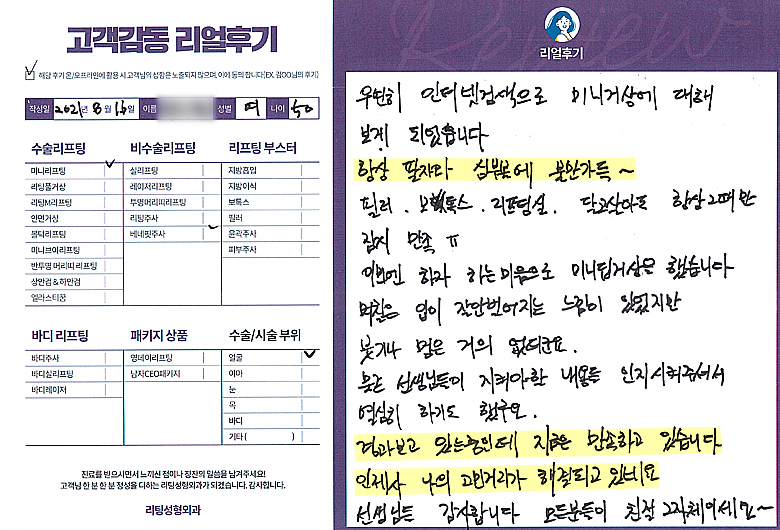 고객감동 리얼후기
해당 후기 온/오프라인에 활용 시 고객님의 성함은 노출되지 않으며, 이에 동의 합니다(EX, 김OO님의 후기)
작성일 2021년 8월 16일 이름 성별 여 나이 50
수술리프팅
미니리프팅
리팅풀거상
리팅M리프팅
안면거상
볼턱리프팅
미니브이리프팅
반투명 머리띠 리프팅
상안검 & 하안검
엘라스티꿈
비수술리프팅
실리프팅
레이저리프팅
투명머리띠리프팅
리팅주사
베네핏주사
리프팅 부스터
지방흡입
지방이식
보톡스
필러
윤곽주사
피부주사
바디 리프팅
바디주사
바디실리프팅
바디레이저
패키지 상품
영네이리프팅
남자CEO패키지
수술/시술 부위
얼굴
이마
눈
목
바디
기타( )
진료를 받으시면서 느끼신 점이나 칭찬의 말씀을 남겨주세요!
고객님 한 분 한 분 정성을 다하는 리팅성형외과가 되겠습니다. 감사합니다.
리팅성형외과
Review
리얼후기
우연히 인터넷검색으로 미니거상에 대해
보게 되었습니다
항상 팔자와 심부볼에 불만가득~
필러. 보톡스. 리프팅실. 달고살아도 항상 그때만
잠시 만족 ㅠ
이번엔 하자 하는마음으로 미니팁거상을 했습니다
며칠은 입이 잘안벌어지는 느낌이 있었지만
붓기나 멍은 거의 없더군요.
모든 선생님들이 지켜야할 내용들 인지시켜주셔서
열심히 하기도 했구요.
경과보고 있는중인데 지금은 만족하고 있습니다
인제사 나의 고민거리가 해결되고 있네요
선생님들 감사합니다 모든분들이 친절 그자체이세요~